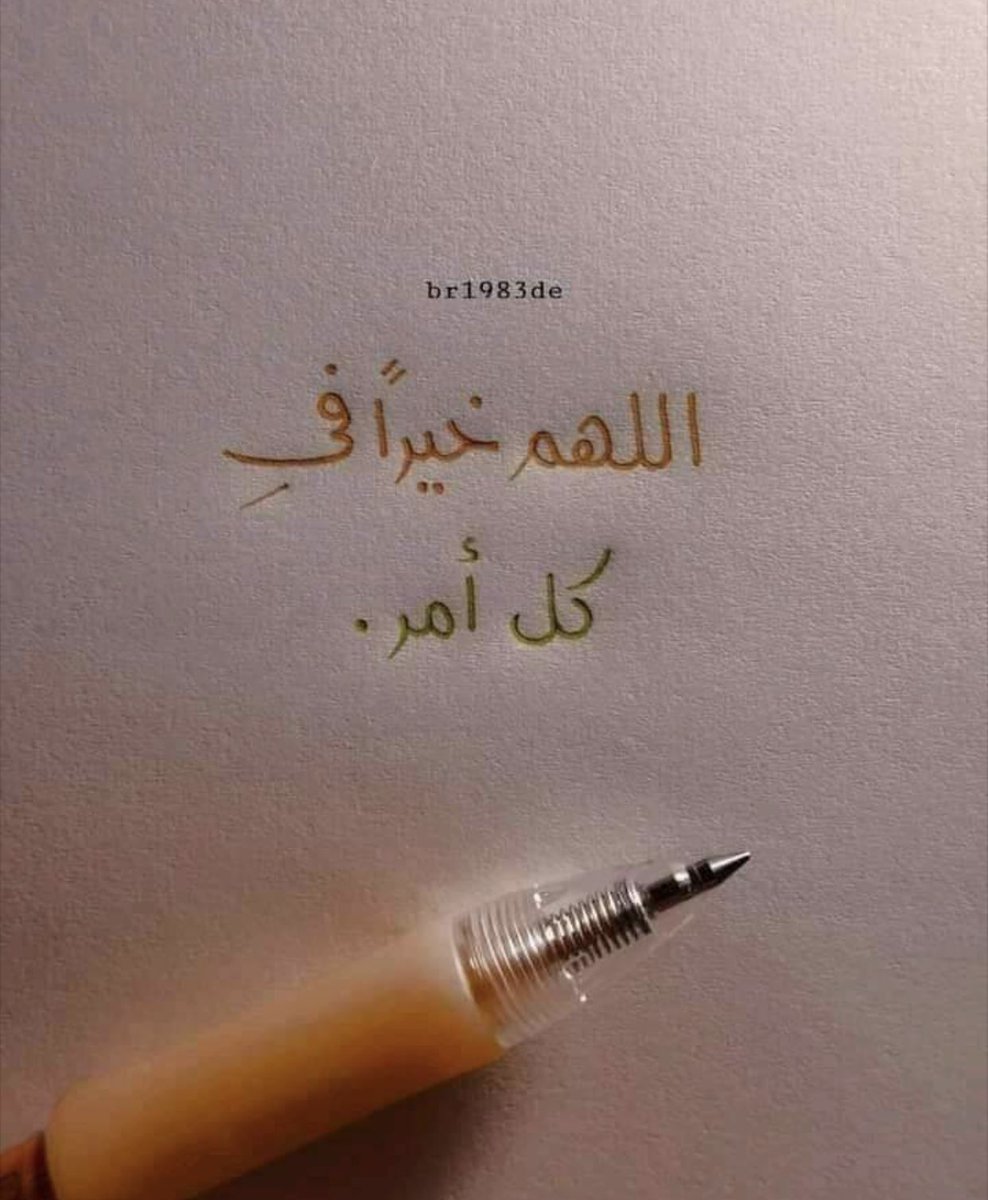 br1983de
اللهم خيراً في
كل أمر.